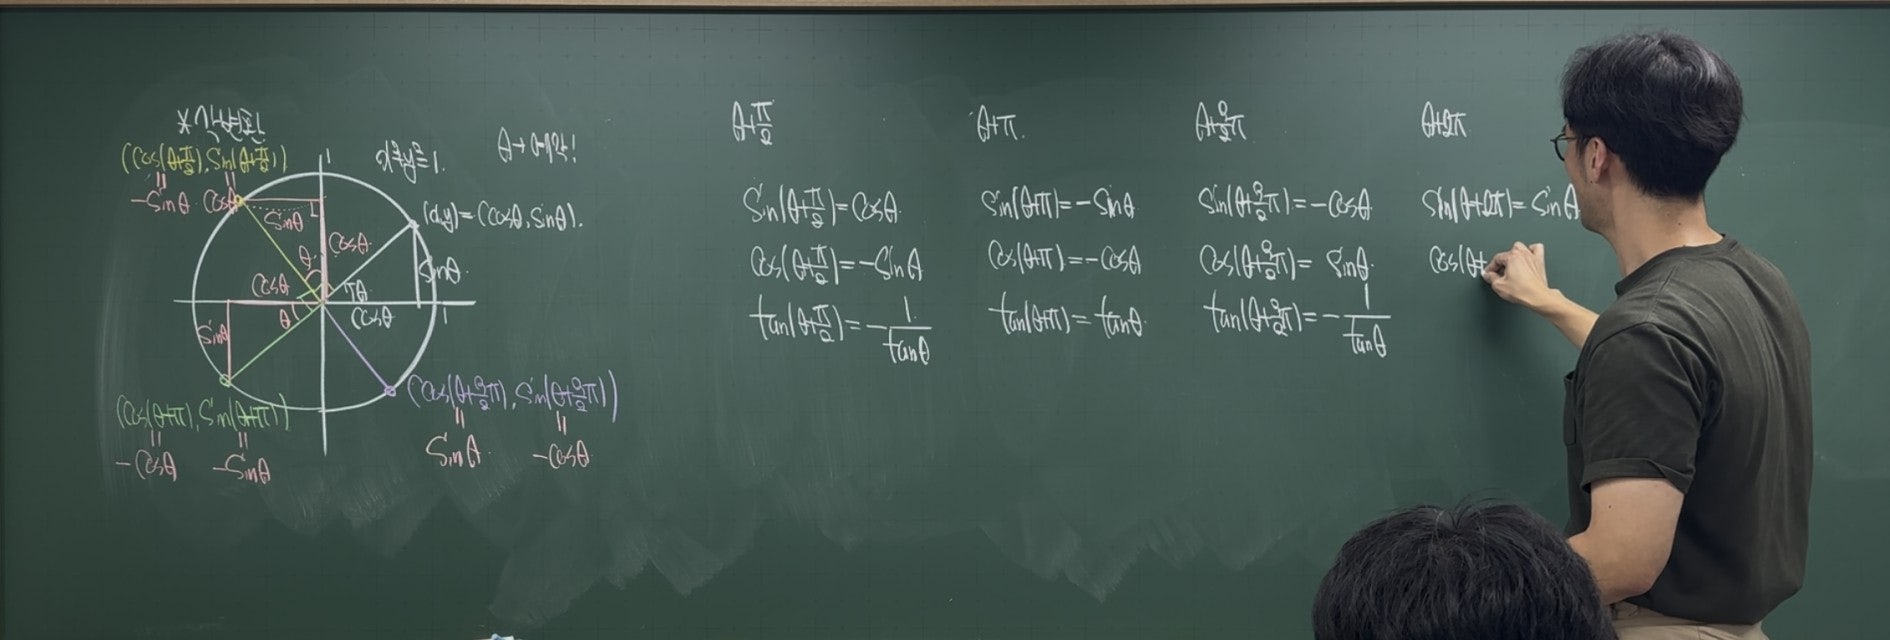 (cos(θ+π/2), sin(θ+π/2))
-sinθ cosθ
1
x²+y²=1.
(x,y)=(cosθ, sinθ).
sinθ
cosθ
θ
cosθ
θ
cosθ
sinθ
1
θ
sinθ
(cos(θ+π), sin(θ+π))
-cosθ -sinθ
(cos(θ+3/2π), sin(θ+3/2π))
sinθ -cosθ
θ+π/2
sin(θ+π/2)=cosθ
cos(θ+π/2)=-sinθ
tan(θ+π/2)=-1/tanθ
θ+π.
sin(θ+π)=-sinθ
cos(θ+π)=-cosθ
tan(θ+π)=tanθ
θ+3/2π
sin(θ+3/2π)=-cosθ
cos(θ+3/2π)= sinθ.
tan(θ+3/2π)=-1/tanθ
θ+2π
sin(θ+2π)=sinθ
cos(θ+